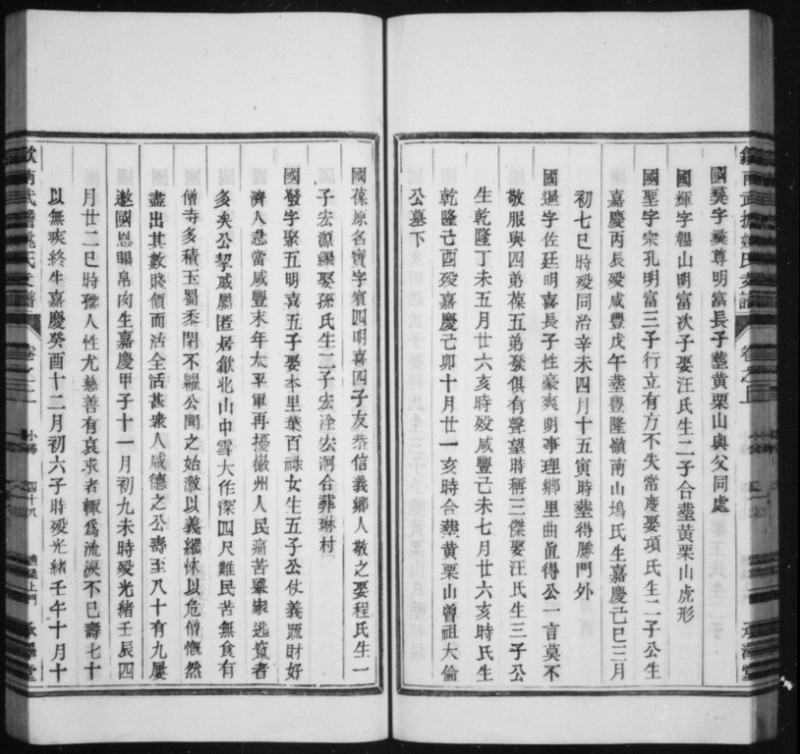 國龑字龑尊明富長子塟黄栗山與父同處
國輝字韞山明富次子娶汪氏生二子合塟黄栗山虎形
國聖字宗孔明富三子行立有方不失常度娶項氏生二子公生
嘉慶丙辰殁咸豐戊午塟豐隆嶺南山塢氏生嘉慶己巳三月
初七巳時殁同治辛未四月十五寅時塟得勝門外
國暹字佐廷明喜長子性豪爽明事理鄉里曲直得公一言莫不
敬服與四弟葆五弟發俱有聲望時稱三傑娶汪氏生三子公
生乾隆丁未五月廿六亥時殁咸豐己未七月廿六亥時氏生
乾隆己酉殁嘉慶己卯十月廿一亥時合塟黄栗山曾祖大倫
公墓下
國葆原名寳字賓四明喜四子友恭信義鄉人敬之娶程氏生一
子宏源繼娶孫氏生二子宏淦宏泂合葬琳村
國發字聚五明喜五子娶本里葉百祿女生五子公仗義疏財好
濟人急當咸豐末年太平軍再擾徽州人民痛苦舉家逃竄者
多矣公挈戚屬匿居歙北山中雪大作深四尺難民苦無食有
僧寺多積玉蜀黍閉不糶公聞之始激以義繼怵以危僧慨然
盡出其數賤價而沽全活甚衆人咸德之公壽至八十有九屢
邀國恩賜帛肉生嘉慶甲子十一月初九未時殁光緒壬辰四
月廿二巳時孺人性尤慈善有哀求者輒爲流淚不已壽七十
以無疾終生嘉慶癸酉十二月初六子時殁光緒壬午十月十